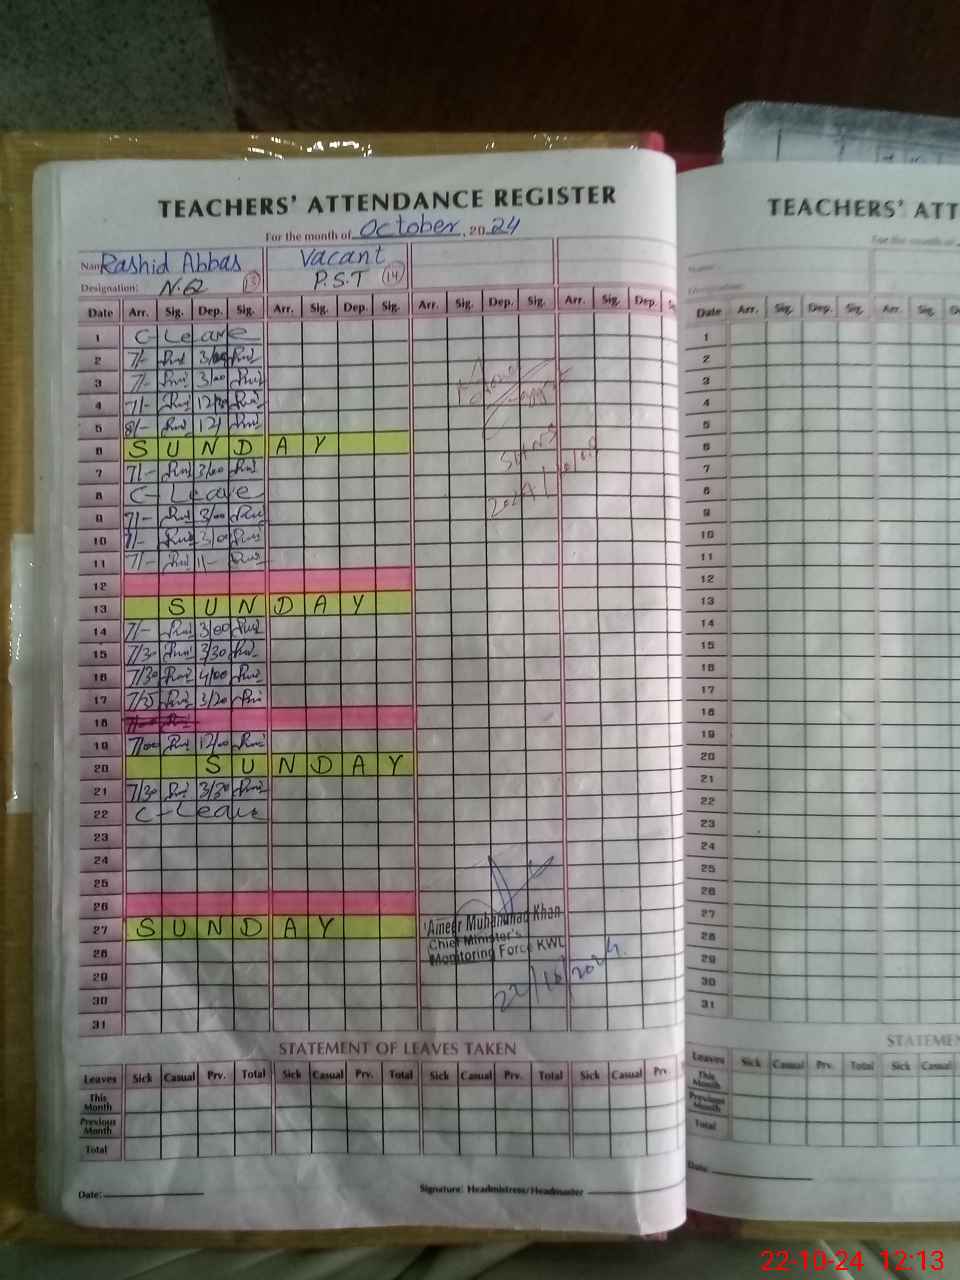 TEACHERS' ATTENDANCE REGISTER
For the month of October, 2024
Name Rashid Abbas Vacant
Designation: N.Q 13 P.S.T 14
Date Arr. Sig. Dep. Sig. Arr. Sig. Dep. Sig. Arr. Sig. Dep. Sig. Arr. Sig. Dep.
1 C-Leave
2 7/- 3/00
3 7/- 3/00
4 7/- 12/00
5 8/- 12/
6 SUNDAY
7 7/- 3/00
8 C-Leave
9 7/- 3/00
10 7/- 3/00
11 7/- 11/-
12
13 SUNDAY
14 7/- 3/00
15 7/30 3/30
16 7/30 4/00
17 7/35 3/20
18
19 7/00 12/00
20 SUNDAY
21 7/30 3/30
22 C-Leave
23
24
25
26
27 SUNDAY
28
29
30
31
Ameer Muhammad Khan
Chief Minister's
Monitoring Force KWL
22/10/2024.
STATEMENT OF LEAVES TAKEN
Leaves Sick Casual Prv. Total Sick Casual Prv. Total Sick Casual Prv. Total Sick Casual Prv.
This Month
Previous Month
Total
Date: Signature: Headmistress/Headmaster
TEACHERS' ATT
For the month of
Name:
Designation:
Date Arr. Sig. Dep. Sig. Arr. Sig.
1
2
3
4
5
6
7
8
9
10
11
12
13
14
15
16
17
18
19
20
21
22
23
24
25
26
27
28
29
30
31
STATEMEN
Leaves Sick Casual Prv. Total Sick Casual
This Month
Previous Month
Total
Date:
22-10-24 12:13